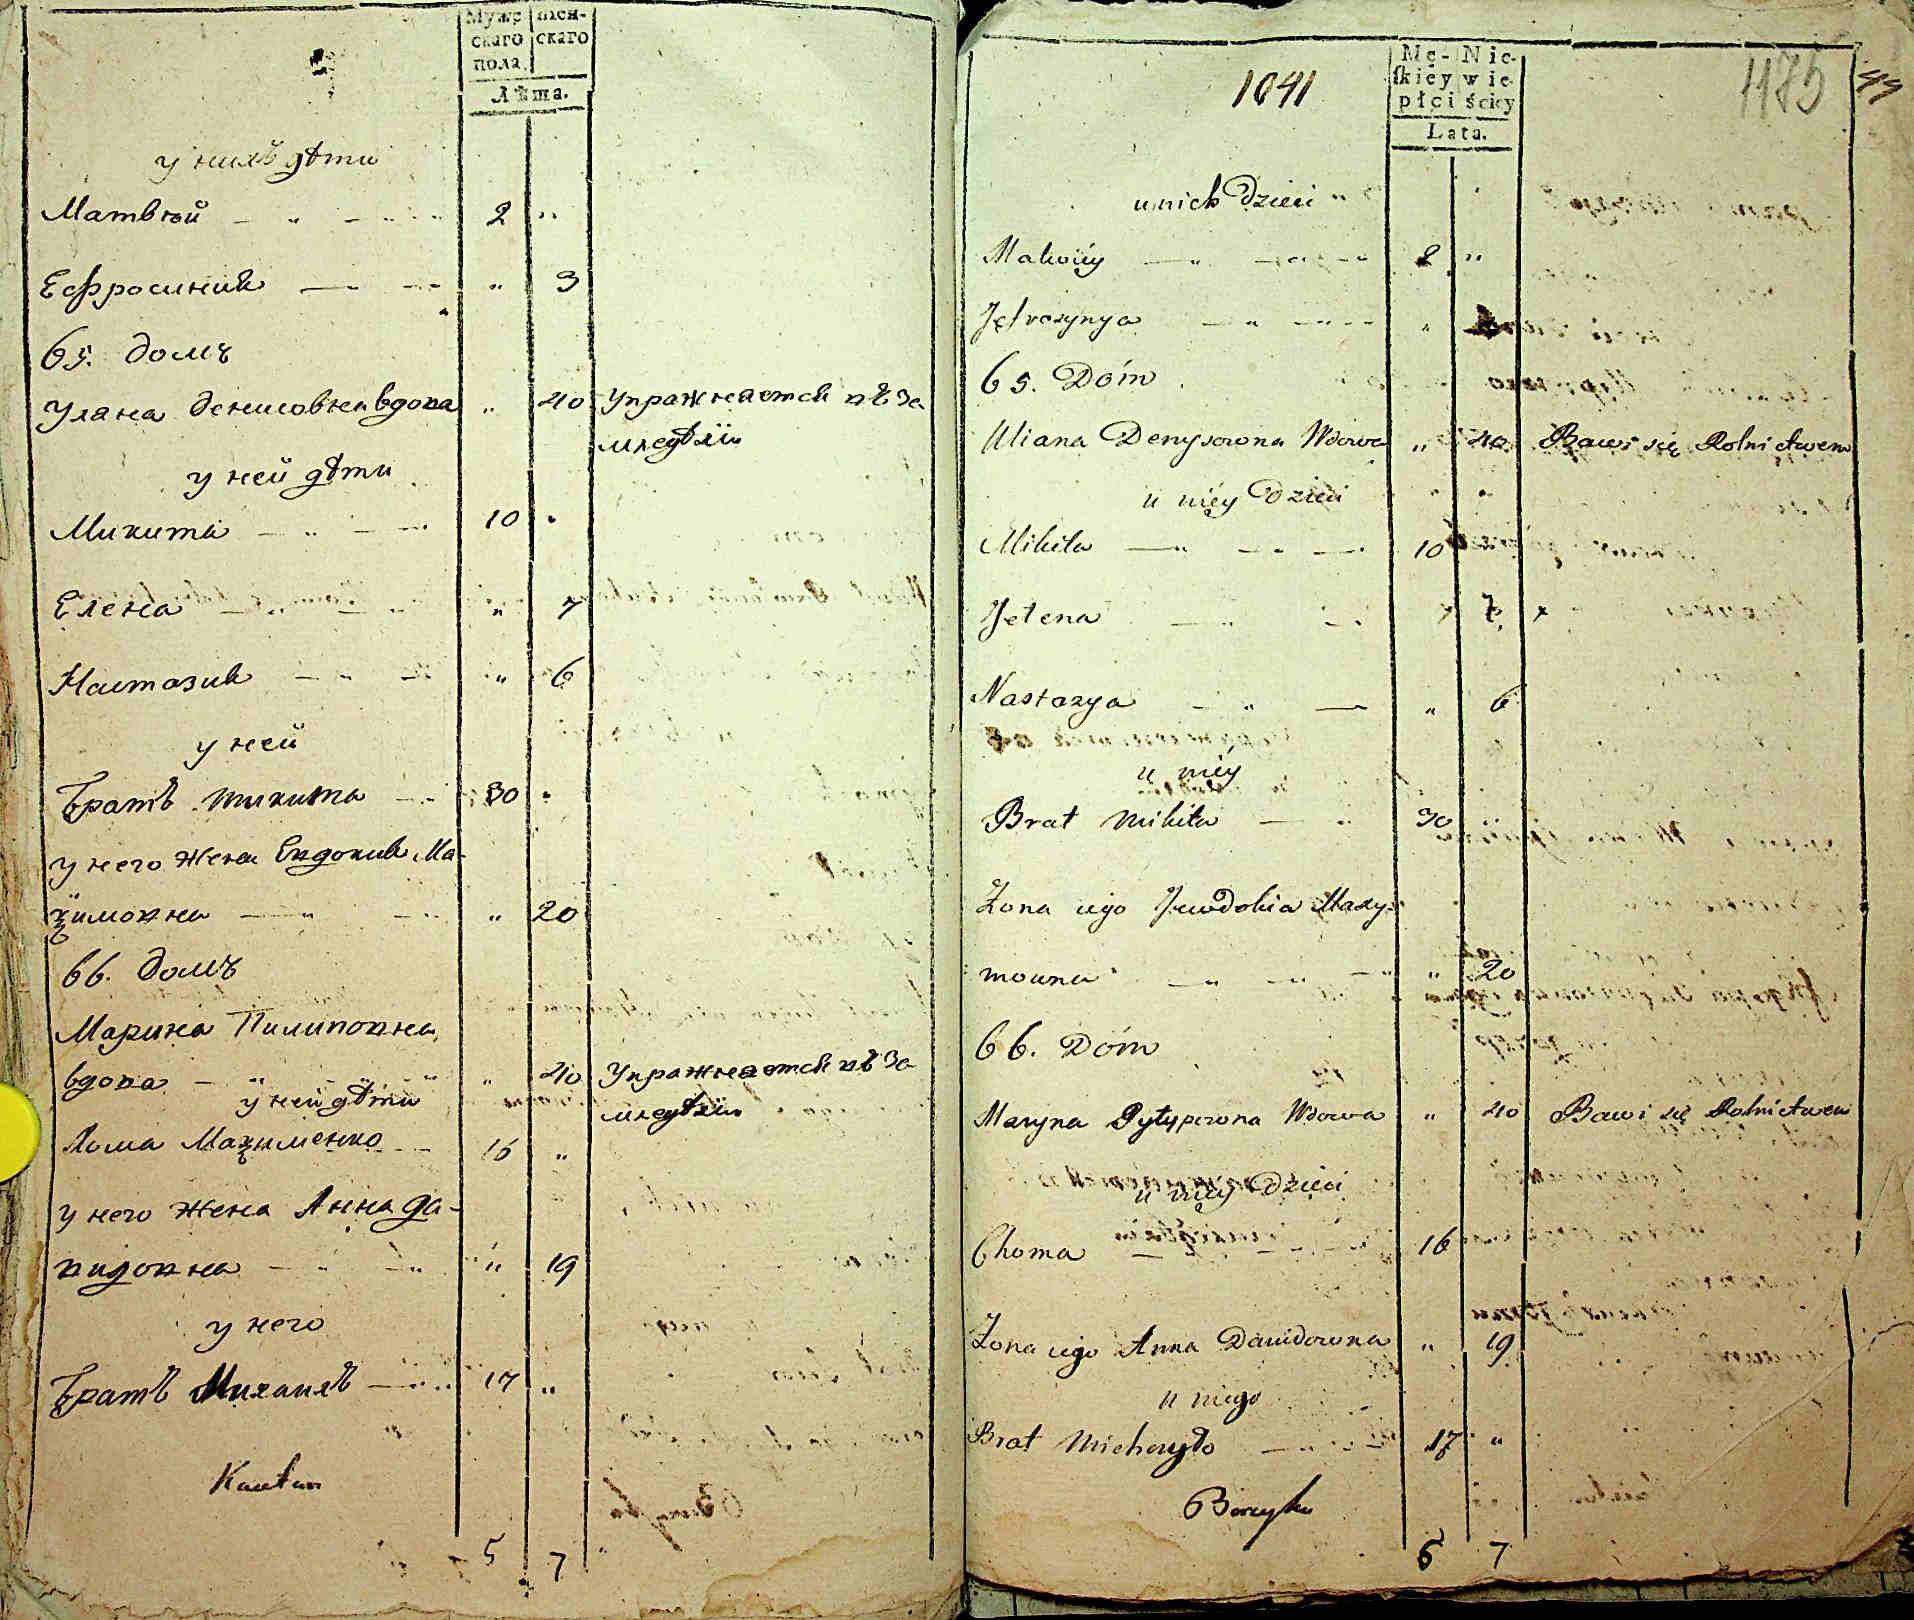 Мужескаго пола
женскаго
Лѣта.
у нихъ дѣти
Матвѣй 2 "
Ефросинія " 3
65. домъ
Уляна Денисовна вдова " 40 Упражняется въ За
мледѣліи
у ней дѣти
Микита 10 "
Елена " 7
Настазия " 6
у ней
Братъ Микита 30 "
у него жена Евдокия Ма-
ѯимовна " 20
66. домъ
Марина Пилиповна
вдова " 40 Упражняется въ За
у ней дѣти мледѣліи
Хома Маѯименко 16 "
у него жена Анна Да-
видовна " 19
у него
Братъ Михаилъ 17 "
5 7
1041
1175
44
Mę- Nie-
skiey wie-
płci ściey
Lata.
u nich Dzieci
Matwiiy 2 "
Jefrozynya "
65. Dóm
Uliana Denysowna Wdowa " 40 Bawi się Rolnictwem
u niéy Dzieci
Mikita 10
Jelena 7
Nastazya " 6
u niéy
Brat Mikita 30
Żona iego Jewdokia Maxy-
mowna " 20
66. Dóm
Maryna Pylypowna Wdowa " 40 Bawi się Rolnictwem
u niéy Dzieci
Choma 16
Żona iego Anna Dawidowna " 19
u niego
Brat Michayło 17 "
5 7